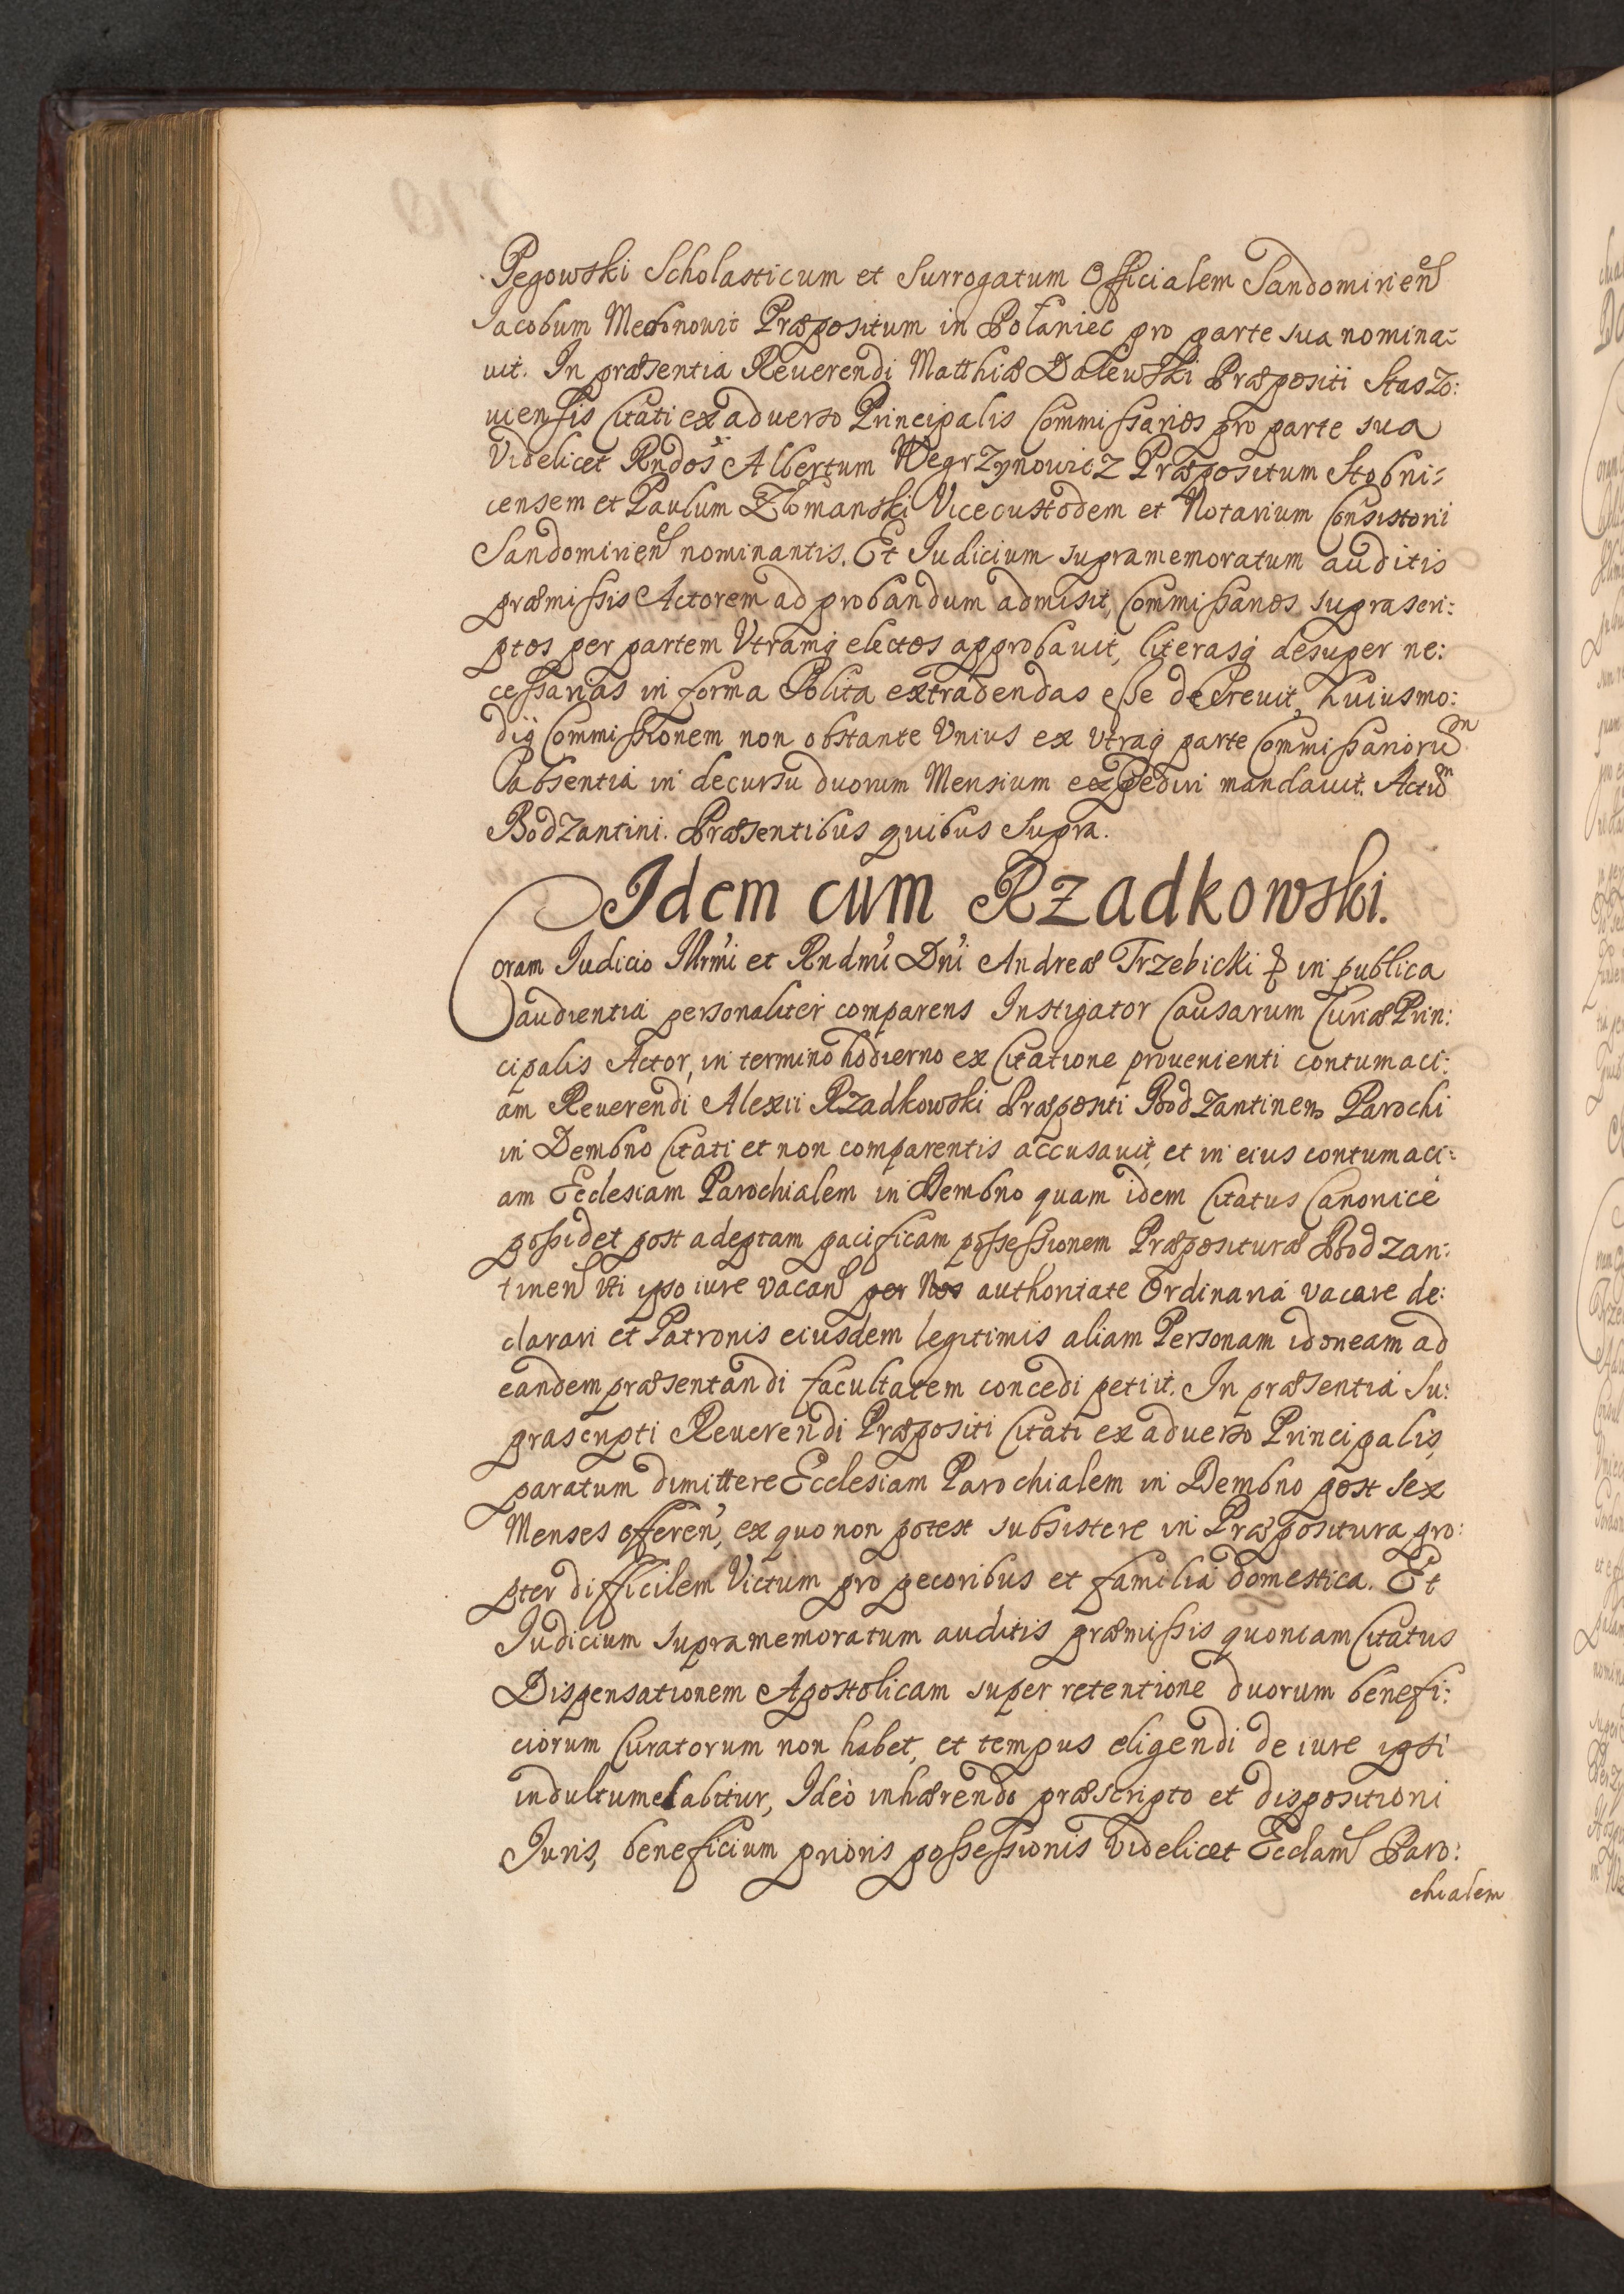 Pegowski Scholasticum et Surrogatum Officialem Sandomirien
Jacobum Medonouic Præpositum in Polaniec pro parte sua nomina:
uit. In præsentia Reuerendi Matthiæ Dalewski Præpositi Staszo:
uiensis Citati ex aduerso Principalis Commissarios pro parte sua
Videlicet Rndos Albertum Wegrzynouicz Præpositum Stobni:
censem et Paulum Zlomanski Vicecustodem et Notarium Consistorii
Sandomirien nominantis. Et Iudicium supramemoratum auditis
præmissis Actorem ad probandum admisit, Commissarios suprascri:
ptos per partem Vtramq electos approbauit, literasq desuper ne:
cessarias in forma solita extradendas esse decreuit, huiusmo:
diq Commissionem non obstante Vnius ex vtraq parte Commissarioru
absentia in decursu duorum Mensium expediri mandauit. Actu
Bodzantini. Præsentibus quibus supra.
Idem cum Rzadkowski.
Coram Iudicio Illrmi et Rndmi Dni Andreæ Trzebicki & in publica
audientia personaliter comparens Instigator Causarum Curiæ Prin:
cipalis Actor, in termino hodierno ex Citatione prouenienti contumaci:
am Reuerendi Alexii Rzadkowski Præpositi Bodzantinens Parochi
in Dembno Citati et non comparentis accusauit, et in eius contumaci:
am Ecclesiam Parochialem in Dembno quam idem Citatus Canonicè
possidet post adeptam pacificam possessionem Præposituræ Bodzan:
tinen vti ipso iure vacan per Nos authoritate Ordinaria vacare de:
clarari et Patronis eiusdem legitimis aliam Personam idoneam ad
eandem præsentandi facultatem concedi petiit. In præsentia su:
prascripti Reuerendi Præpositi Citati ex aduerso Principalis,
paratum dimittere Ecclesiam Parochialem in Dembno post sex
Menses offeren, ex quo non potest subsistere in Præpositura pro:
pter difficilem Victum pro pecoribus et familia domestica. Et
Iudicium supramemoratum auditis præmissis quoniam Citatus
Dispensationem Apostolicam super retentione duorum benefi:
ciorum Curatorum non habet, et tempus eligendi de iure ipsi
indultum elabitur, Ideò inhærendo præscripto et dispositioni
Iuris, beneficium prioris possessionis videlicet Ecclam Paro:
chialem